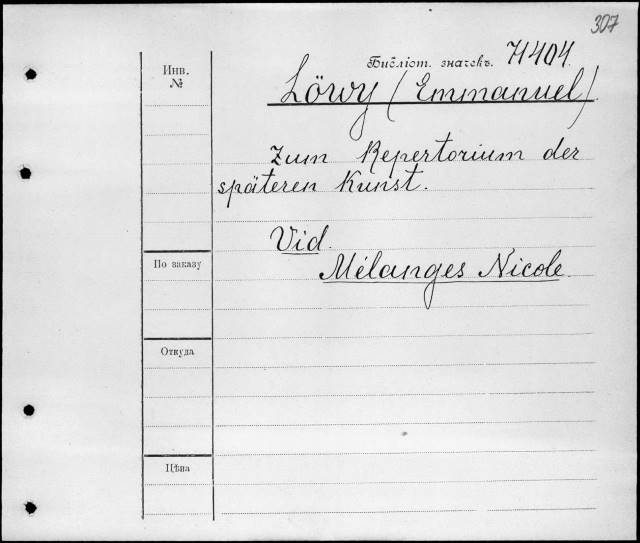 307
Библіот. значекъ. 71404.
Инв.
№
Löwy (Emmanuel).
Zum Repertorium der
späteren Kunst.
Vid.
Mélanges Nicole.
По заказу
Откуда
Цѣна